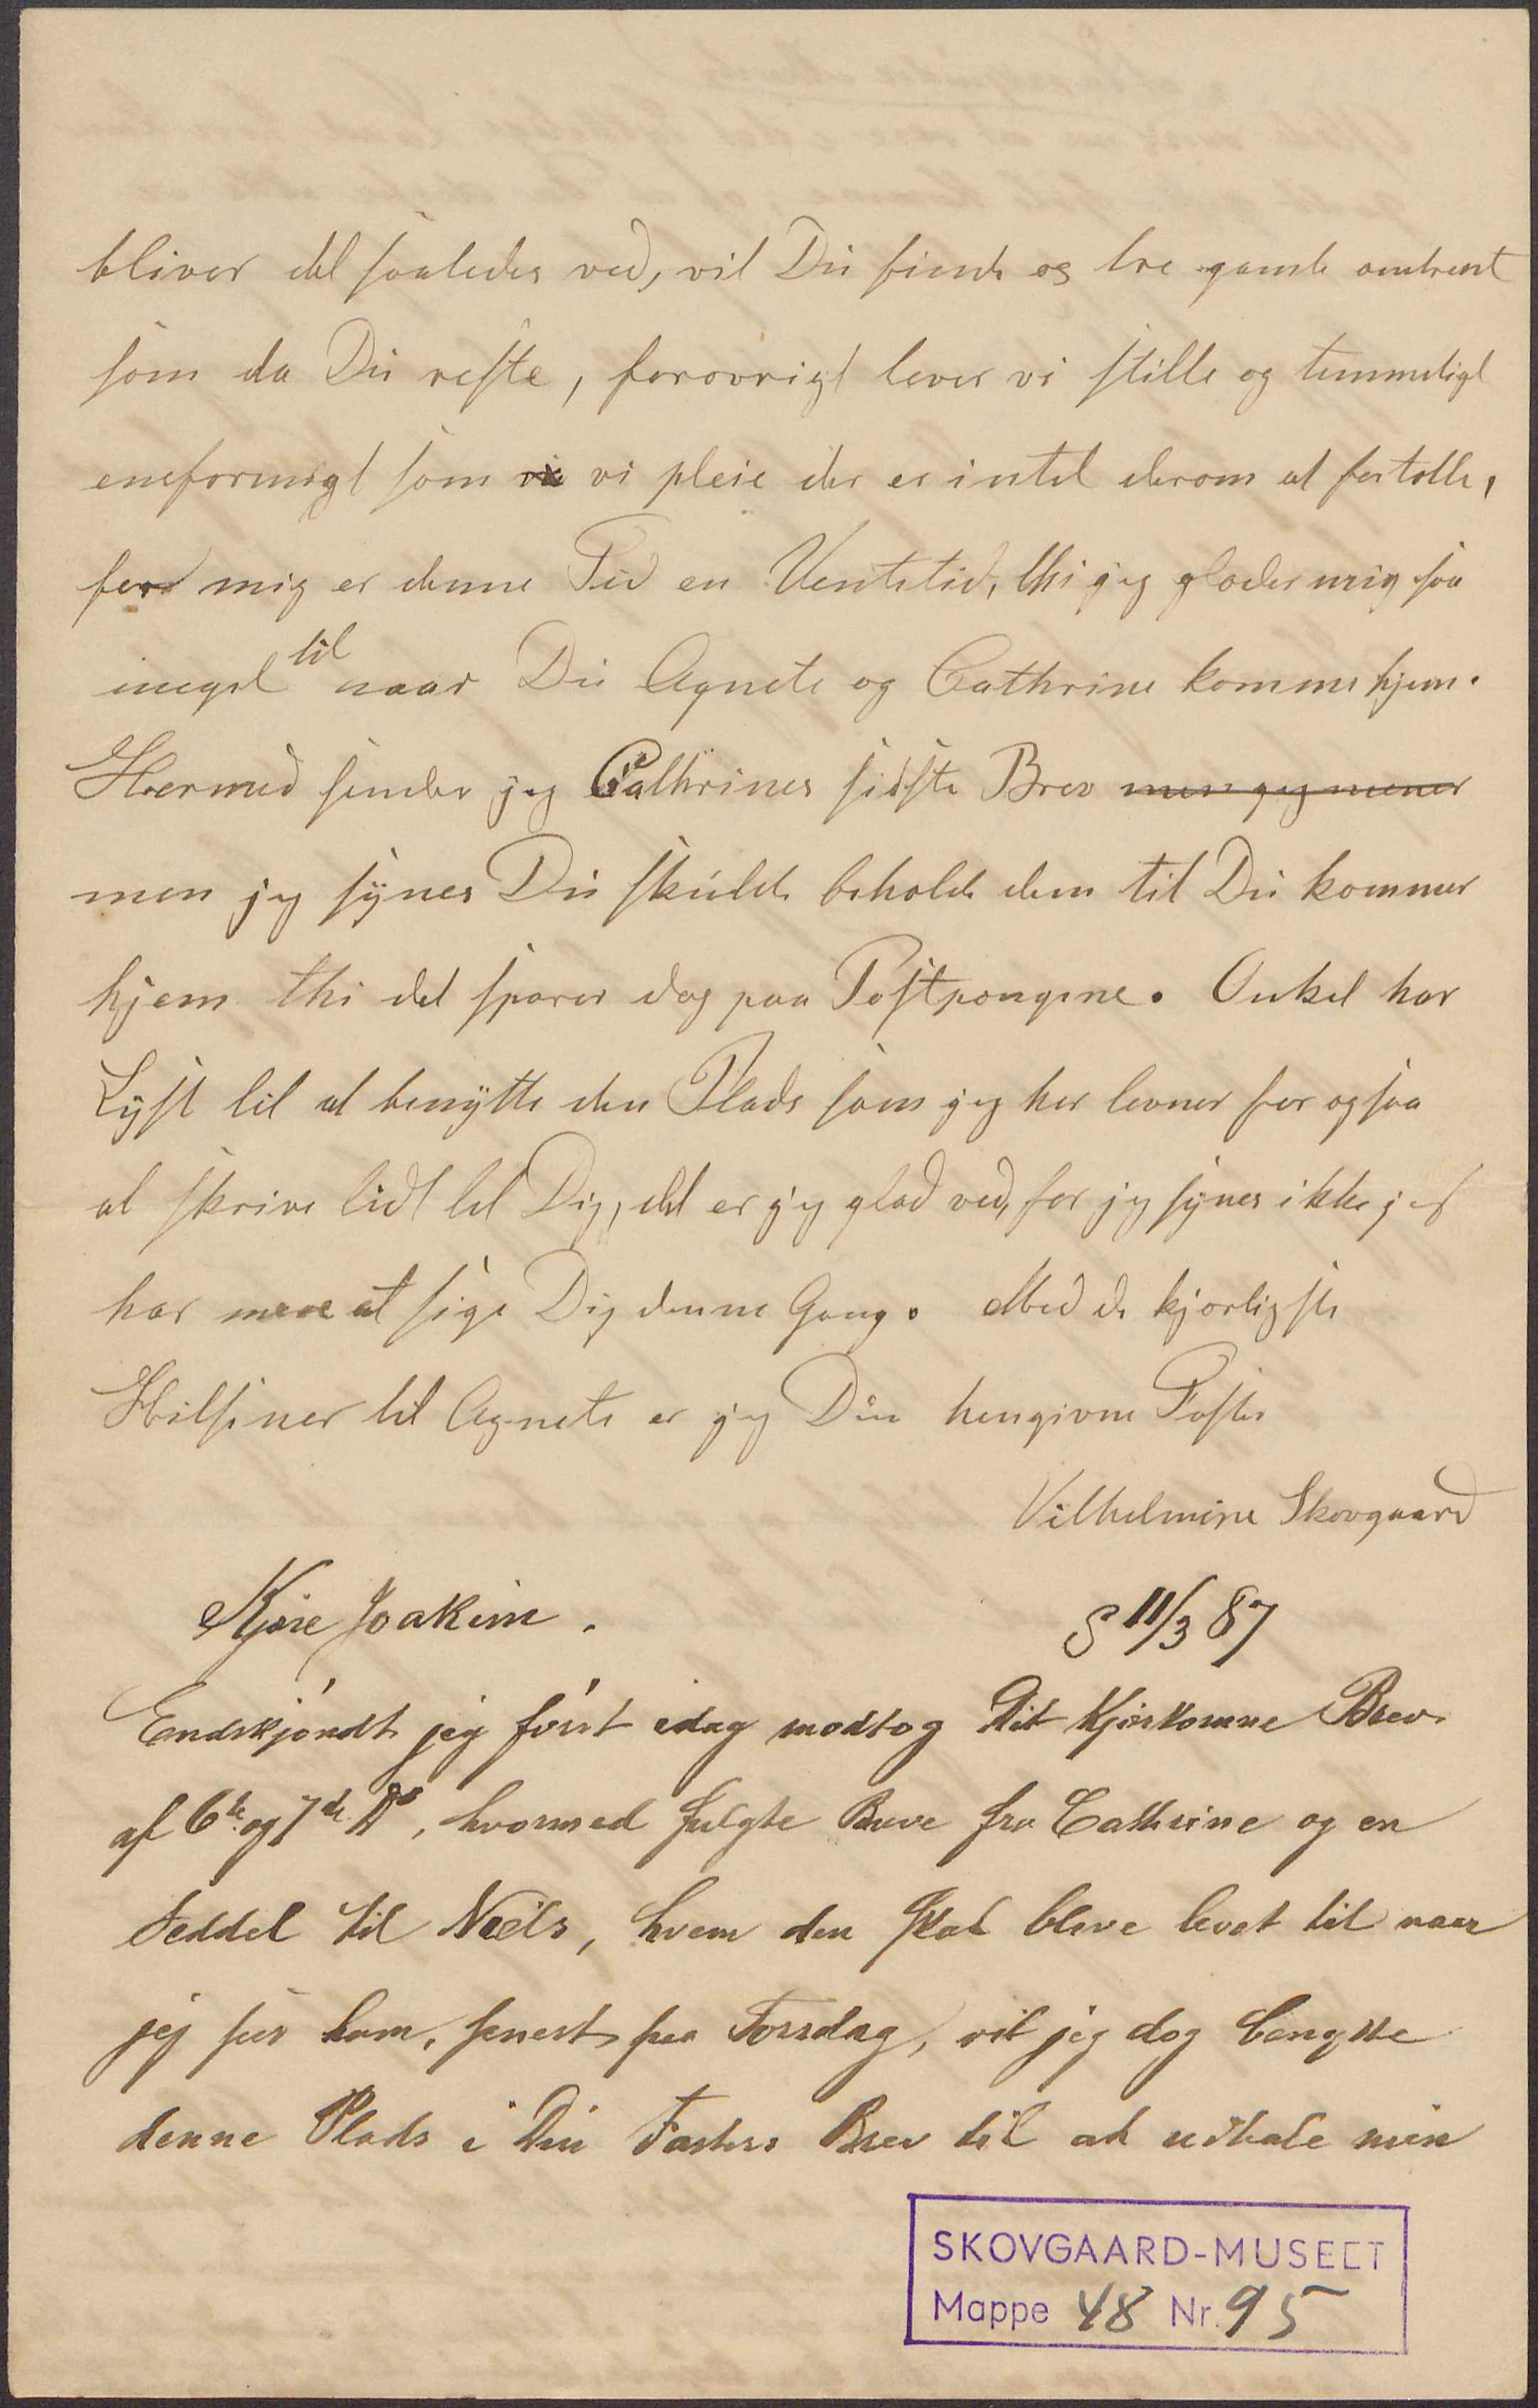 bliver det saaledes ved, vil Du finde os tre gamle omtrent
som da Du reiste, forøvrigt lever vi stille og temmeligt
eensformigt som vi vi pleie der er intet derom at fortælle,
for mig er denne Tid en Ventetid, thi jeg glæder mig saa
meget til naar Du Agnete og Cathrine komme hjem.
Hermed sender jeg Cathrines sidste Brev men jeg mener
men jeg synes Du skulde beholde dem til Du kommer
hjem thi det sparer dog paa Postpengene. Onkel har
Lyst til at benytte den Plads som jeg her levner for ogsaa
at skrive lidt til Dig, det er jeg glad ved, for jeg synes ikke jeg
har mere at sige Dig denne Gang. Med de kjærligste
Hilsener til Agnete er jeg Din hengivne Faster
Vilhelmine Skovgaard
Kjære Joakim.
S 11/3 87
Endskjøndt jeg først idag modtog Dit kjærkomne Brev
af 6te og 7de Ds, hvormed fulgte Breve fra Cathrine og en
Seddel til Niels, hvem den skal blive levet til naar
jeg ser ham, senest paa Torsdag, vil jeg dog benytte
denne Plads i Din Fasters Brev til at udtale min
SKOVGAARD-MUSEET
Mappe 48 Nr. 95